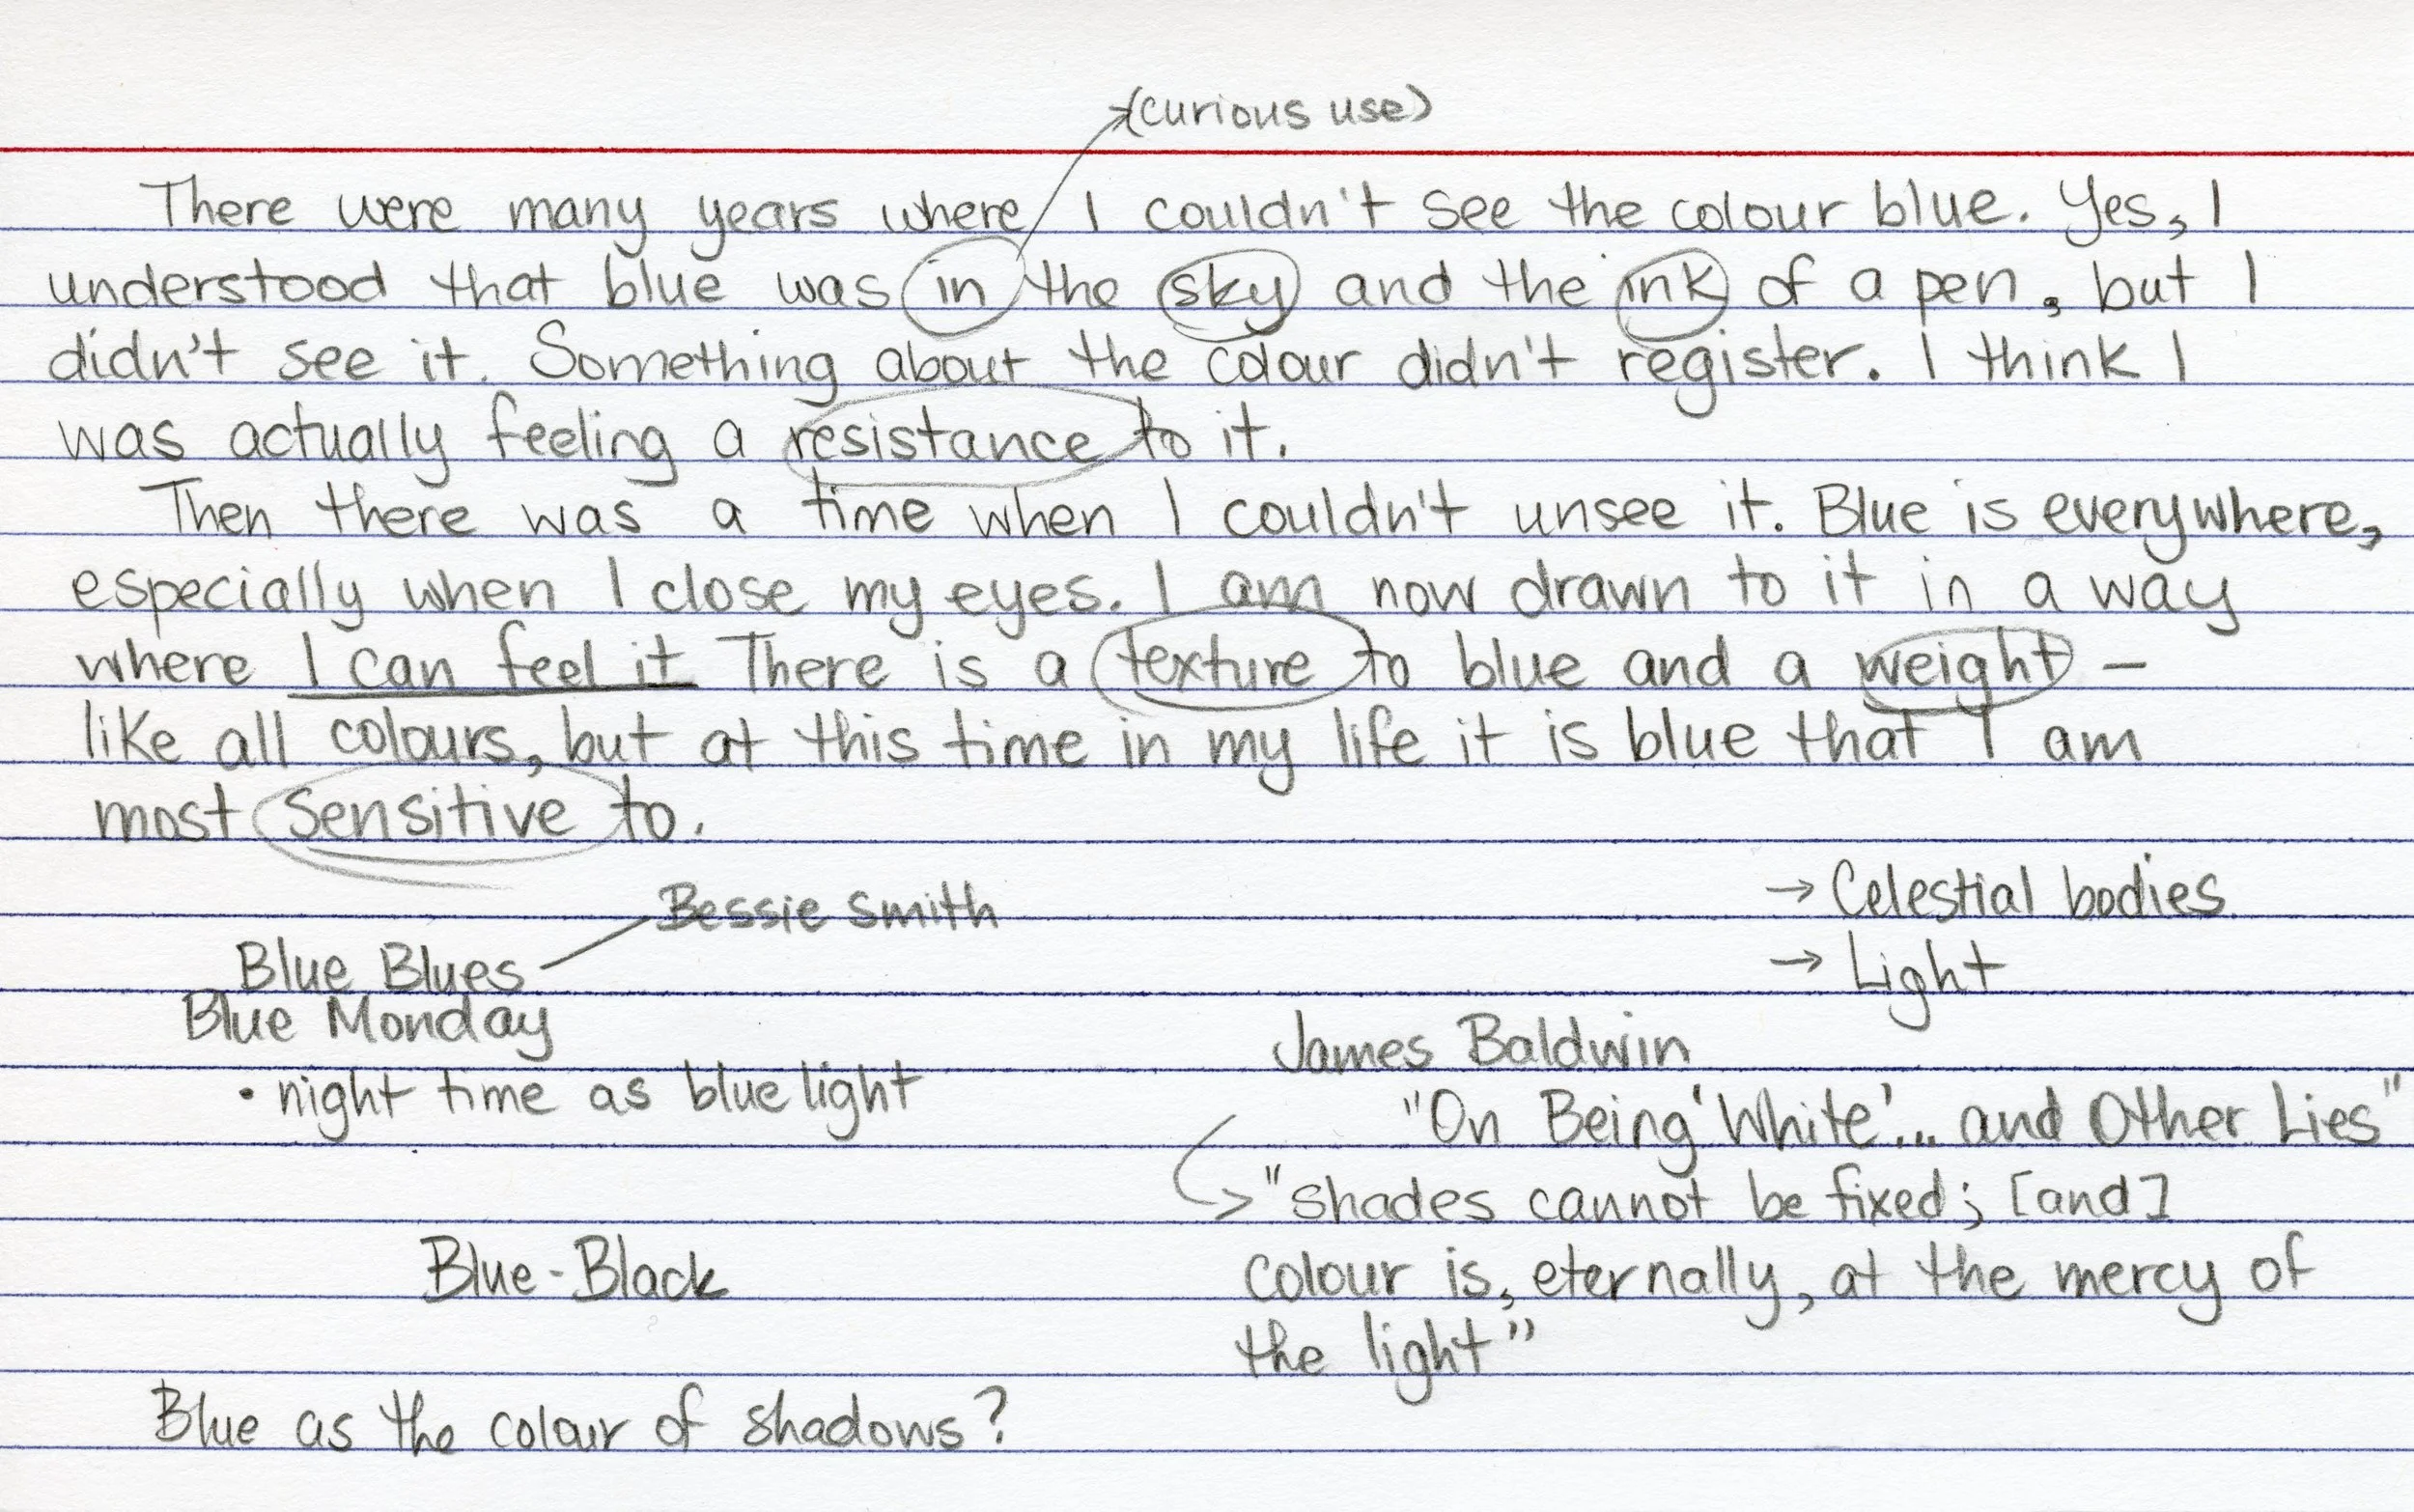 (curious use)
There were many years where I couldn't see the colour blue. Yes, I
understood that blue was in the sky and the ink of a pen, but I
didn't see it. Something about the colour didn't register. I think I
was actually feeling a resistance to it.
Then there was a time when I couldn't unsee it. Blue is everywhere,
especially when I close my eyes. I am now drawn to it in a way
where I can feel it There is a texture to blue and a weight –
like all colours, but at this time in my life it is blue that I am
most sensitive to.
Bessie Smith
Blue Blues
Blue Monday
• night time as blue light
Blue-Black
Blue as the colour of shadows?
→ Celestial bodies
→ Light
James Baldwin
"On Being 'White'... and Other Lies"
"shades cannot be fixed; [and]
colour is, eternally, at the mercy of
the light"